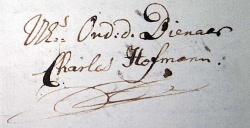 UEs. Ond:d: Dienaer
Charles Hofmann.